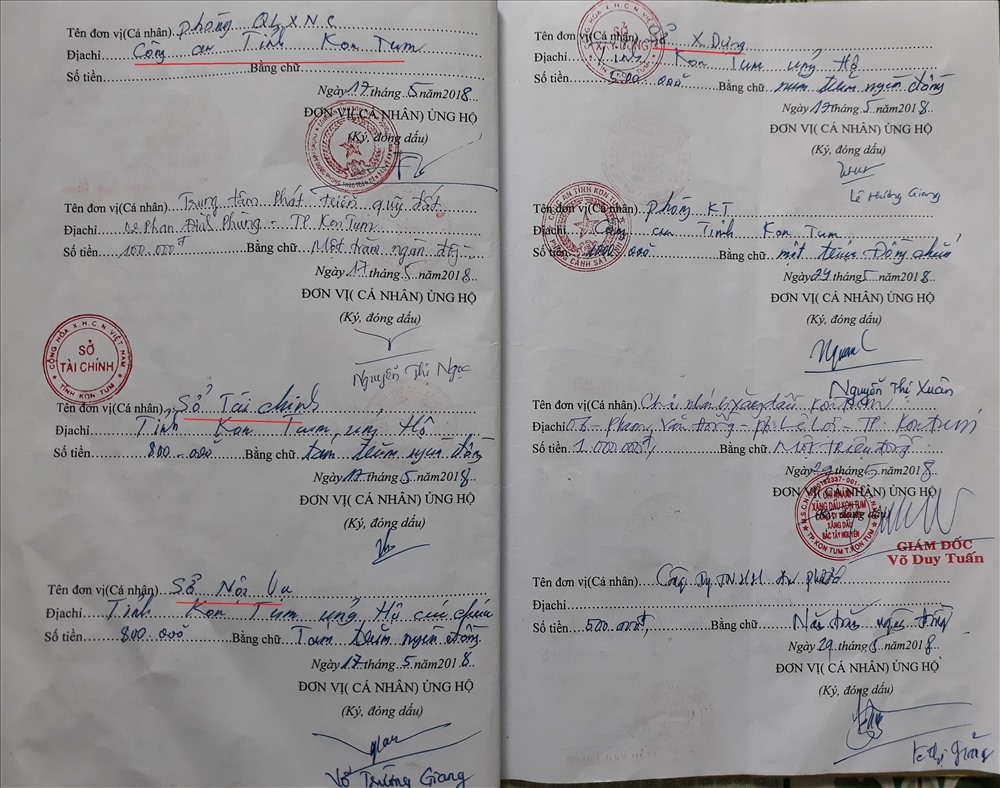 Tên đơn vị(Cá nhân) phòng QLXNC
Địachỉ Công an Tỉnh Kon Tum
Số tiền Bằng chữ
Ngày 17 tháng 5 năm 2018
ĐƠN VỊ( CÁ NHÂN) ỦNG HỘ
(Ký, đóng dấu)
Tên đơn vị(Cá nhân) Trung tâm Phát triển quỹ đất
Địachỉ Phan Đình Phùng - TP Kon Tum
Số tiền 100.000đ Bằng chữ Một trăm ngàn đồng
Ngày 17 tháng 5 năm 2018
ĐƠN VỊ( CÁ NHÂN) ỦNG HỘ
(Ký, đóng dấu)
Nguyễn Thị Ngọc
CỘNG HÒA X.H.C.N VIỆT NAM
SỞ
TÀI CHÍNH
TỈNH KON TUM
Tên đơn vị(Cá nhân) Sở Tài chính
Địachỉ Tỉnh Kon Tum ủng Hộ
Số tiền 800.000 Bằng chữ tám trăm ngàn đồng
Ngày 17 tháng 5 năm 2018
ĐƠN VỊ( CÁ NHÂN) ỦNG HỘ
(Ký, đóng dấu)
Tên đơn vị(Cá nhân) Sở Nội Vụ
Địachỉ Tỉnh Kon Tum ủng Hộ
Số tiền 800.000 Bằng chữ Tám trăm ngàn đồng
Ngày 17 tháng 5 năm 2018
ĐƠN VỊ( CÁ NHÂN) ỦNG HỘ
(Ký, đóng dấu)
Võ Trường Giang
Tên đơn vị(Cá nhân) Sở X. Dựng
Địachỉ Tỉnh Kon Tum ủng Hộ
Số tiền 500.000 Bằng chữ năm trăm ngàn đồng
Ngày 17 tháng 5 năm 2018
ĐƠN VỊ( CÁ NHÂN) ỦNG HỘ
(Ký, đóng dấu)
Lê Hương Giang
Tên đơn vị(Cá nhân) phòng KT
Địachỉ Công an Tỉnh Kon Tum
Số tiền Bằng chữ một triệu Đồng chẵn
Ngày 29 tháng 5 năm 2018
ĐƠN VỊ( CÁ NHÂN) ỦNG HỘ
(Ký, đóng dấu)
Nguyễn Thị Xuân
Tên đơn vị(Cá nhân) Chi nhánh xăng dầu Kon Tum
Địachỉ 06 - Phạm Văn Đồng - P. Lê Lợi - TP Kon Tum
Số tiền 1.000.000đ Bằng chữ Một triệu đồng
Ngày 29 tháng 5 năm 2018
ĐƠN VỊ( CÁ NHÂN) ỦNG HỘ
(Ký, đóng dấu)
CHI NHÁNH
XĂNG DẦU KON TUM
XĂNG DẦU
BẮC TÂY NGUYÊN
TP.KON TUM T.KON TUM
GIÁM ĐỐC
Võ Duy Tuấn
Tên đơn vị(Cá nhân) Công ty TNHH
Địachỉ
Số tiền 500.000đ Bằng chữ Năm trăm ngàn đồng
Ngày 29 tháng 5 năm 2018
ĐƠN VỊ( CÁ NHÂN) ỦNG HỘ
(Ký, đóng dấu)